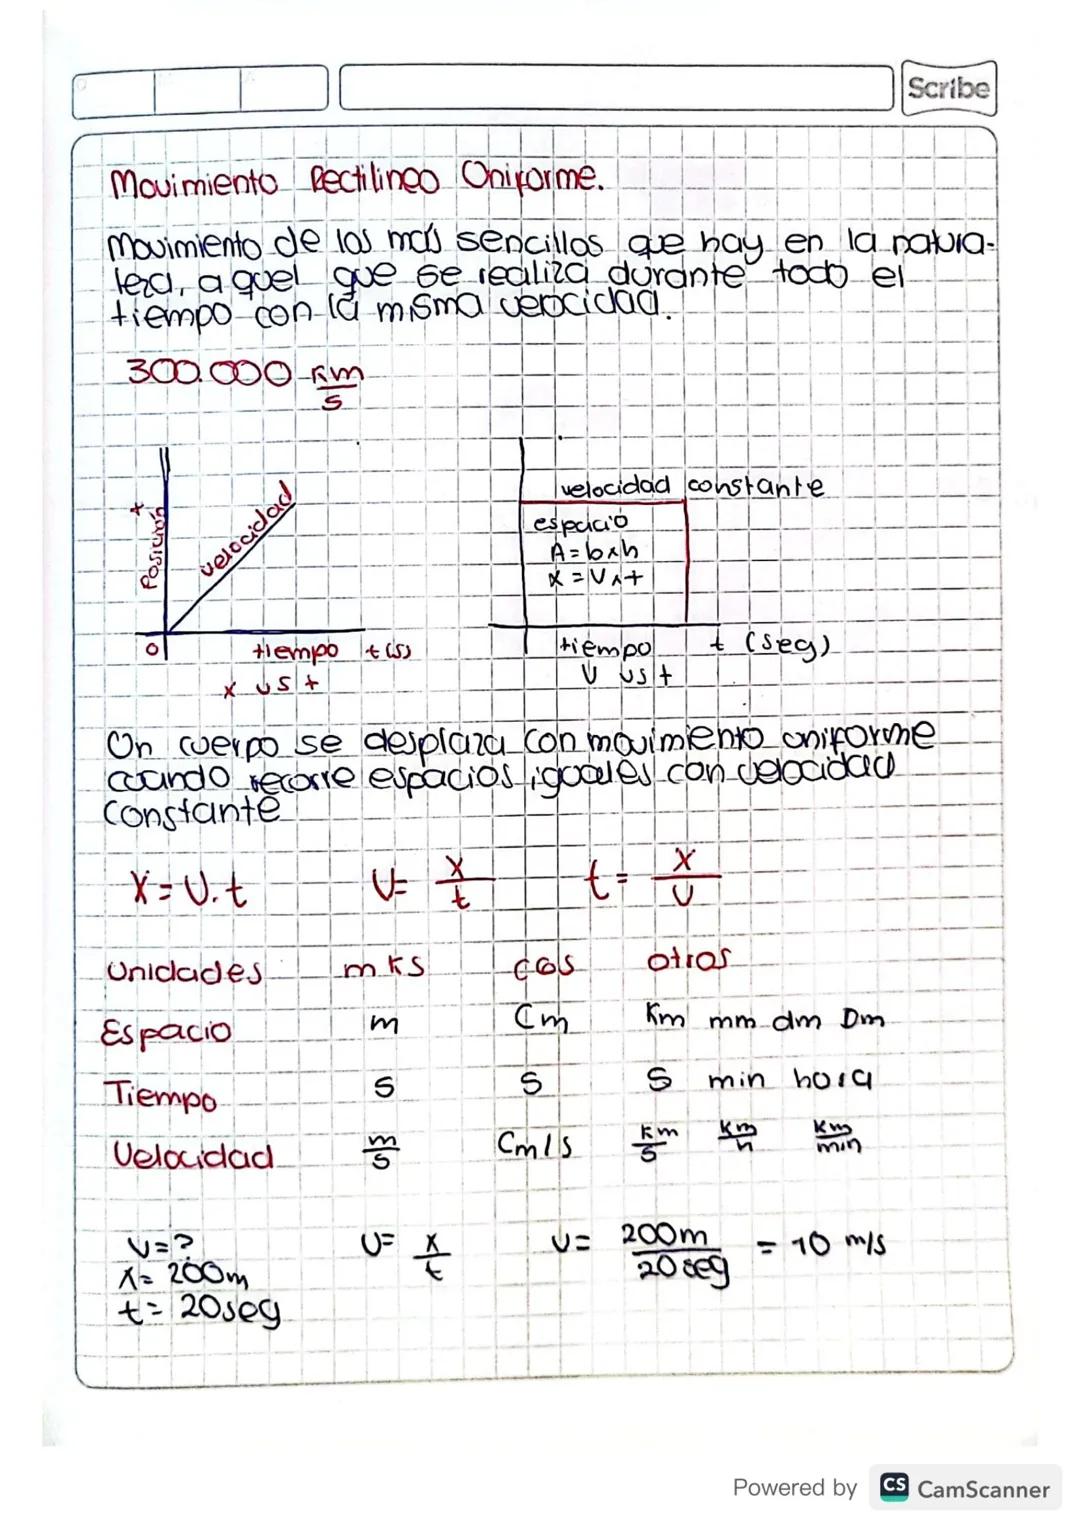 Scribe
Movimiento Rectilineo Uniforme.
Movimiento de los más sencillos que hay en la natura-
leza, aquel que se realiza durante todo el
tiempo con la misma velocidad.
300.000 Km/s
Posición x
velocidad
0
tiempo t(s)
x vs t
velocidad constante
espacio
A = b x h
x = v x t
tiempo t (seg)
V vs t
Un cuerpo se desplaza con movimiento uniforme
cuando recorre espacios iguales con velocidad
constante
X = V.t V = x/t t = x/v
Unidades mks CGS otros
Espacio m Cm Km mm dm Dm
Tiempo s s s min hora
Velocidad m/s Cm/s km/s km/h km/min
V=? V= x/t V= 200m/20seg = 10 m/s
x= 200m
t= 20seg
Powered by CS CamScanner